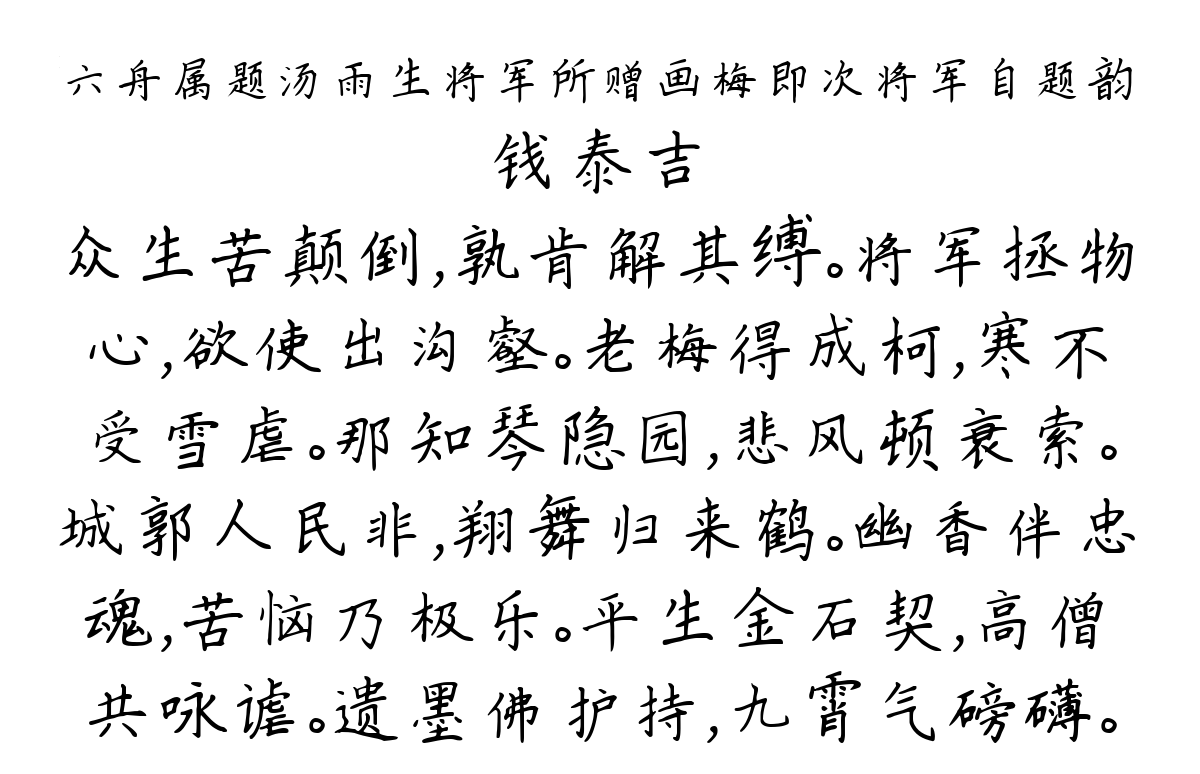 六舟属题汤雨生将军所赠画梅即次将军自题韵
钱泰吉
众生苦颠倒,孰肯解其缚。将军拯物
心,欲使出沟壑。老梅得成柯,寒不
受雪虐。那知琴隐园,悲风顿衰索。
城郭人民非,翔舞归来鹤。幽香伴忠
魂,苦恼乃极乐。平生金石契,高僧
共咏谑。遗墨佛护持,九霄气磅礴。